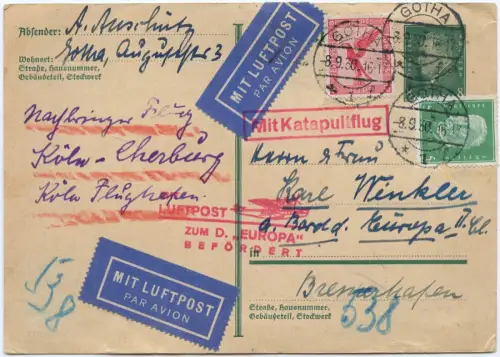 Absender: A. Anschütz
Wohnort: Gotha, Auguststr 3
Straße, Hausnummer,
Gebäudeteil, Stockwerk
MIT LUFTPOST
PAR AVION
GOTHA
-8.9.30.16-17
GOTHA
-8.9.30.16-17
-8.9.30.16-17
Mit Katapultflug
Nachbringer Flug
Köln-Cherburg
Köln Flughafen
LUFTPOST
ZUM D. „EUROPA"
BEFÖRDERT
Herrn & Frau
Karl Winkler
a. Bord d. Europa II. Cl.
in
Bremerhafen
Straße, Hausnummer,
Gebäudeteil, Stockwerk
MIT LUFTPOST
PAR AVION
538
538